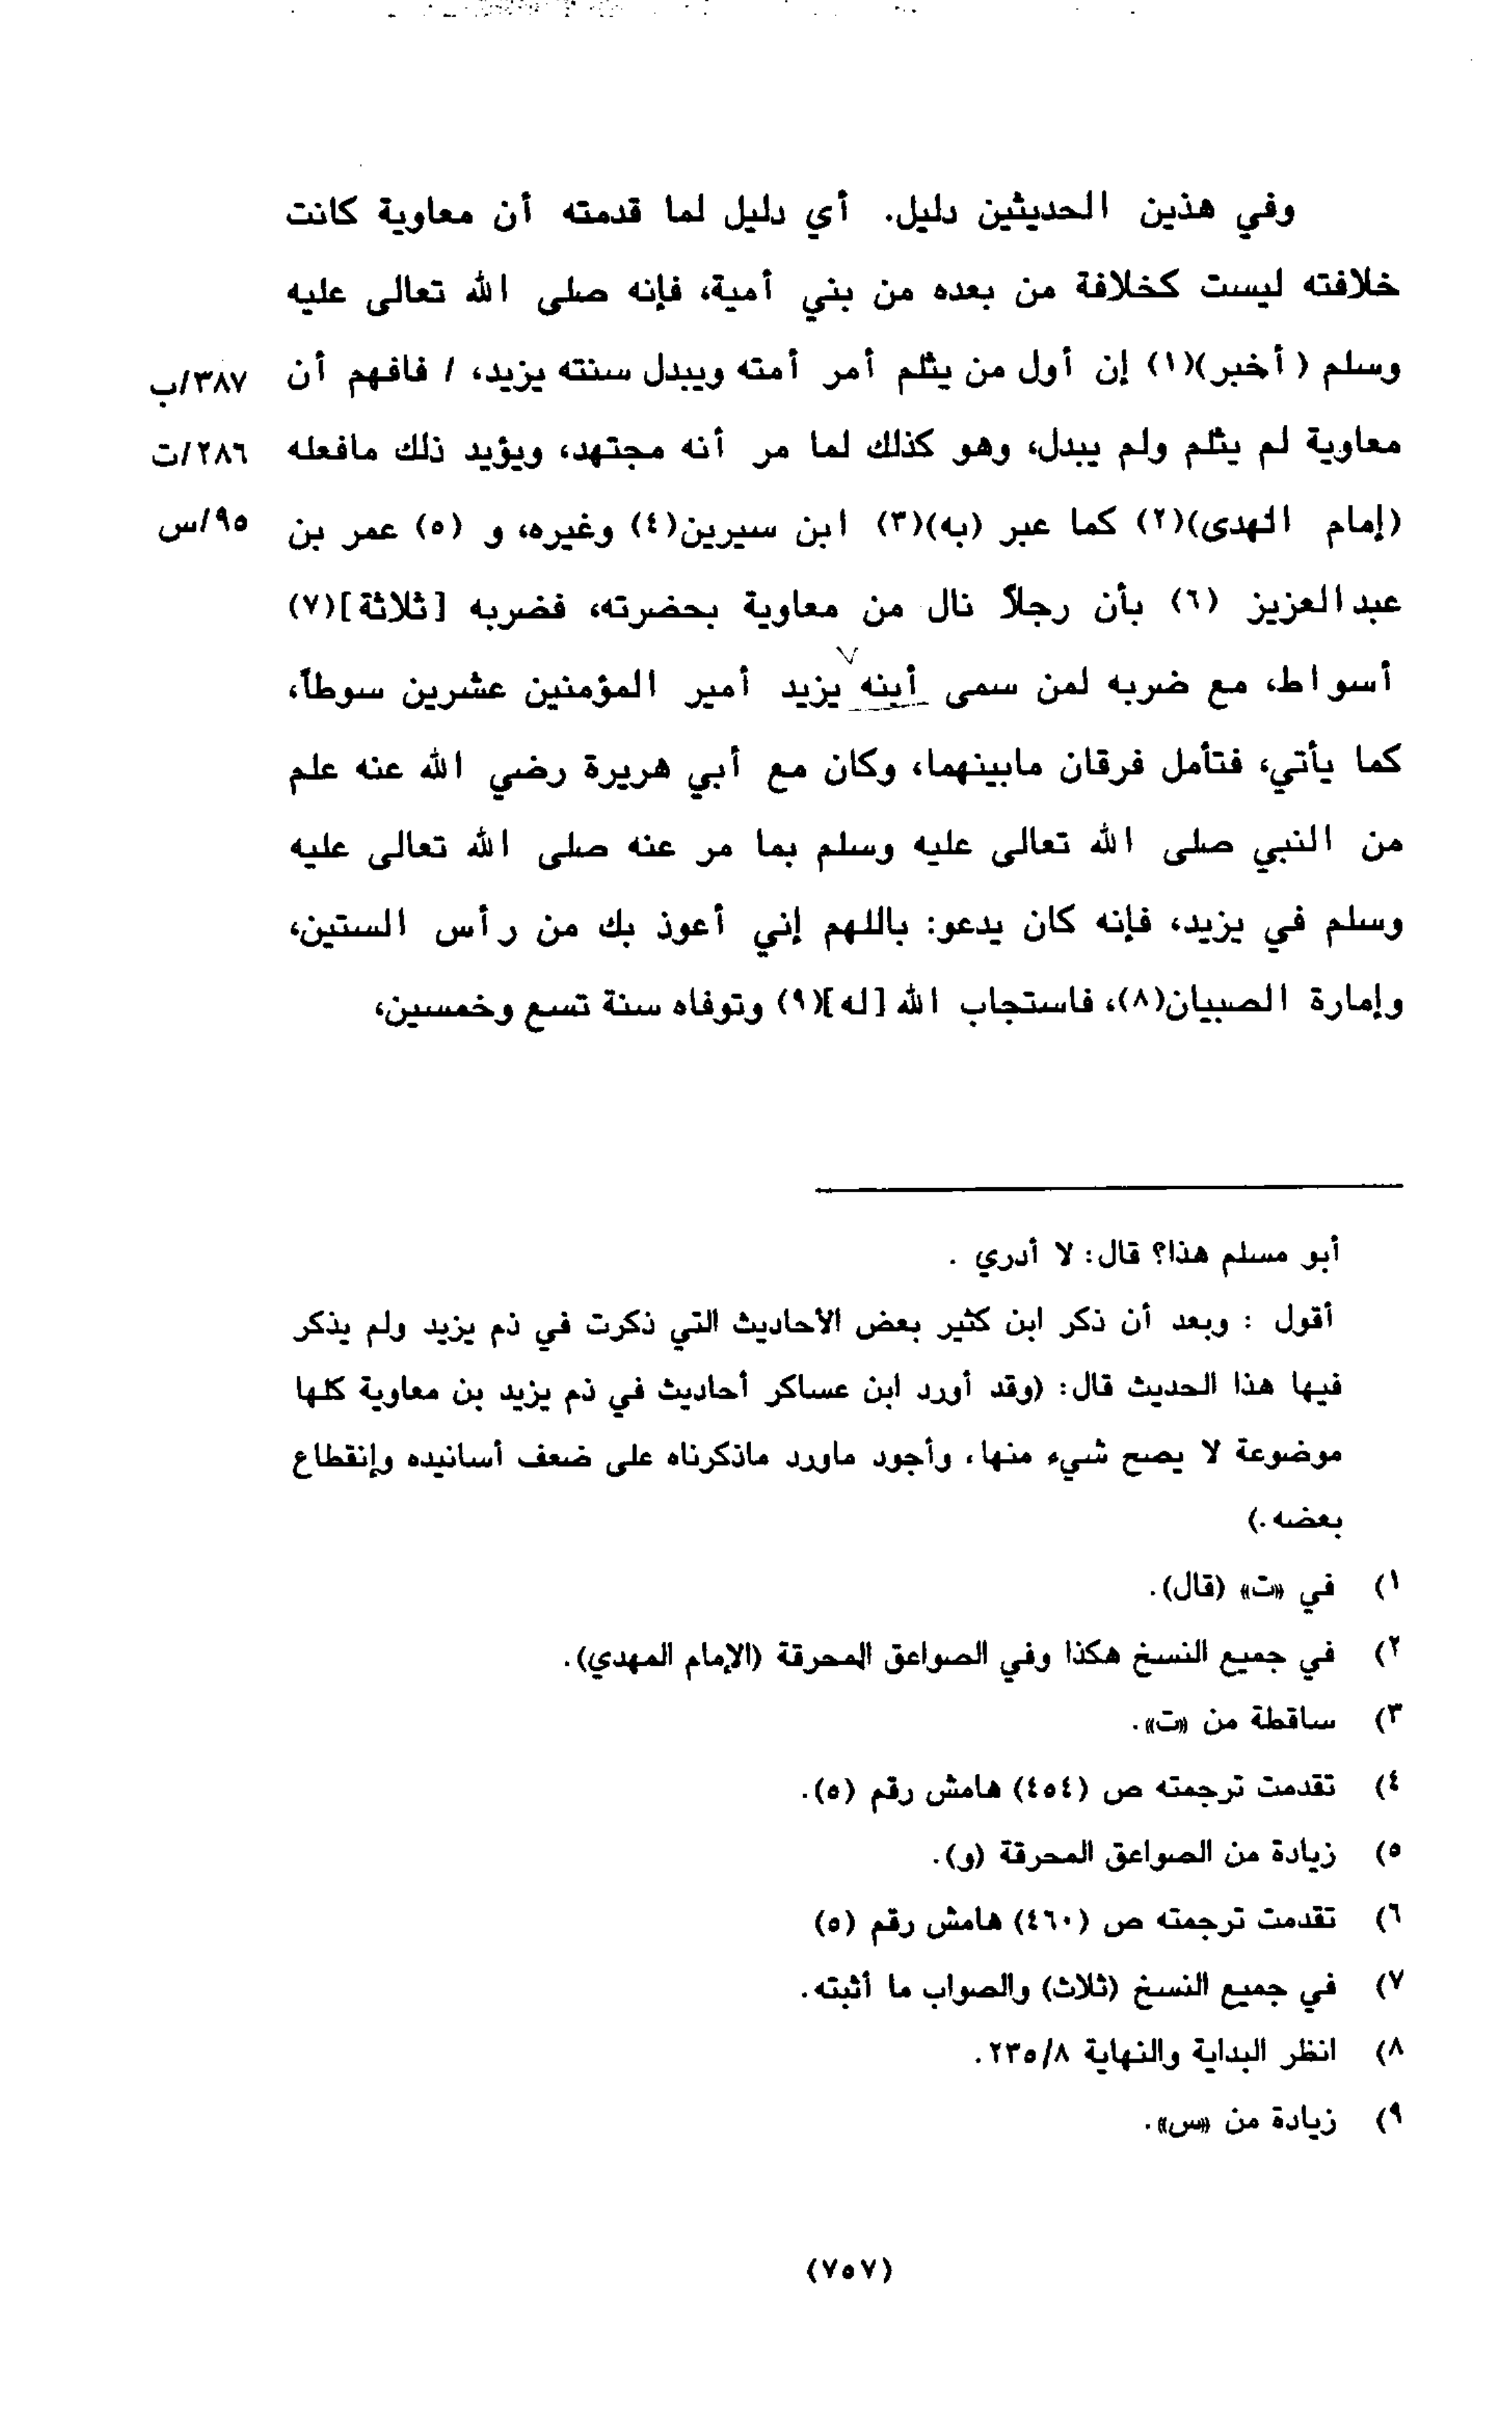 وفي هذين الحديثين دليل. أي دليل لما قدمته أن معاوية كانت
خلافته ليست كخلافة من بعده من بني أمية، فإنه صلى الله تعالى عليه
وسلم (أخبر)(١) إن أول من يثلم أمر أمته ويبدل سنته يزيد، / فافهم أن ٣٨٧/ب
معاوية لم يثلم ولم يبدل، وهو كذلك لما مر أنه مجتهد، ويؤيد ذلك مافعله ٢٨٦/ت
(إمام الهدى)(٢) كما عبر (به)(٣) ابن سيرين(٤) وغيره، و (٥) عمر بن ٩٥/س
عبدالعزيز (٦) بأن رجلاً نال من معاوية بحضرته، فضربه [ثلاثة](٧)
أسواط، مع ضربه لمن سمى أبنه يزيد أمير المؤمنين عشرين سوطاً،
كما يأتي، فتأمل فرقان مابينهما، وكان مع أبي هريرة رضي الله عنه علم
من النبي صلى الله تعالى عليه وسلم بما مر عنه صلى الله تعالى عليه
وسلم في يزيد، فإنه كان يدعو: باللهم إني أعوذ بك من رأس الستين،
وإمارة الصبيان(٨)، فاستجاب الله [له](٩) وتوفاه سنة تسع وخمسين،
أبو مسلم هذا؟ قال: لا أدري .
أقول : وبعد أن ذكر ابن كثير بعض الأحاديث التي ذكرت في ذم يزيد ولم يذكر
فيها هذا الحديث قال: (وقد أورد ابن عساكر أحاديث في ذم يزيد بن معاوية كلها
موضوعة لا يصح شيء منها، وأجود ماورد ماذكرناه على ضعف أسانيده وإنقطاع
بعضه.)
١) في «ت» (قال).
٢) في جميع النسخ هكذا وفي الصواعق المحرقة (الإمام المهدي).
٣) ساقطة من «ت».
٤) تقدمت ترجمته ص (٤٥٤) هامش رقم (٥).
٥) زيادة من الصواعق المحرقة (و).
٦) تقدمت ترجمته ص (٤٦٠) هامش رقم (٥)
٧) في جميع النسخ (ثلاث) والصواب ما أثبته.
٨) انظر البداية والنهاية ٢٣٥/٨.
٩) زيادة من «س».
(٧٥٧)